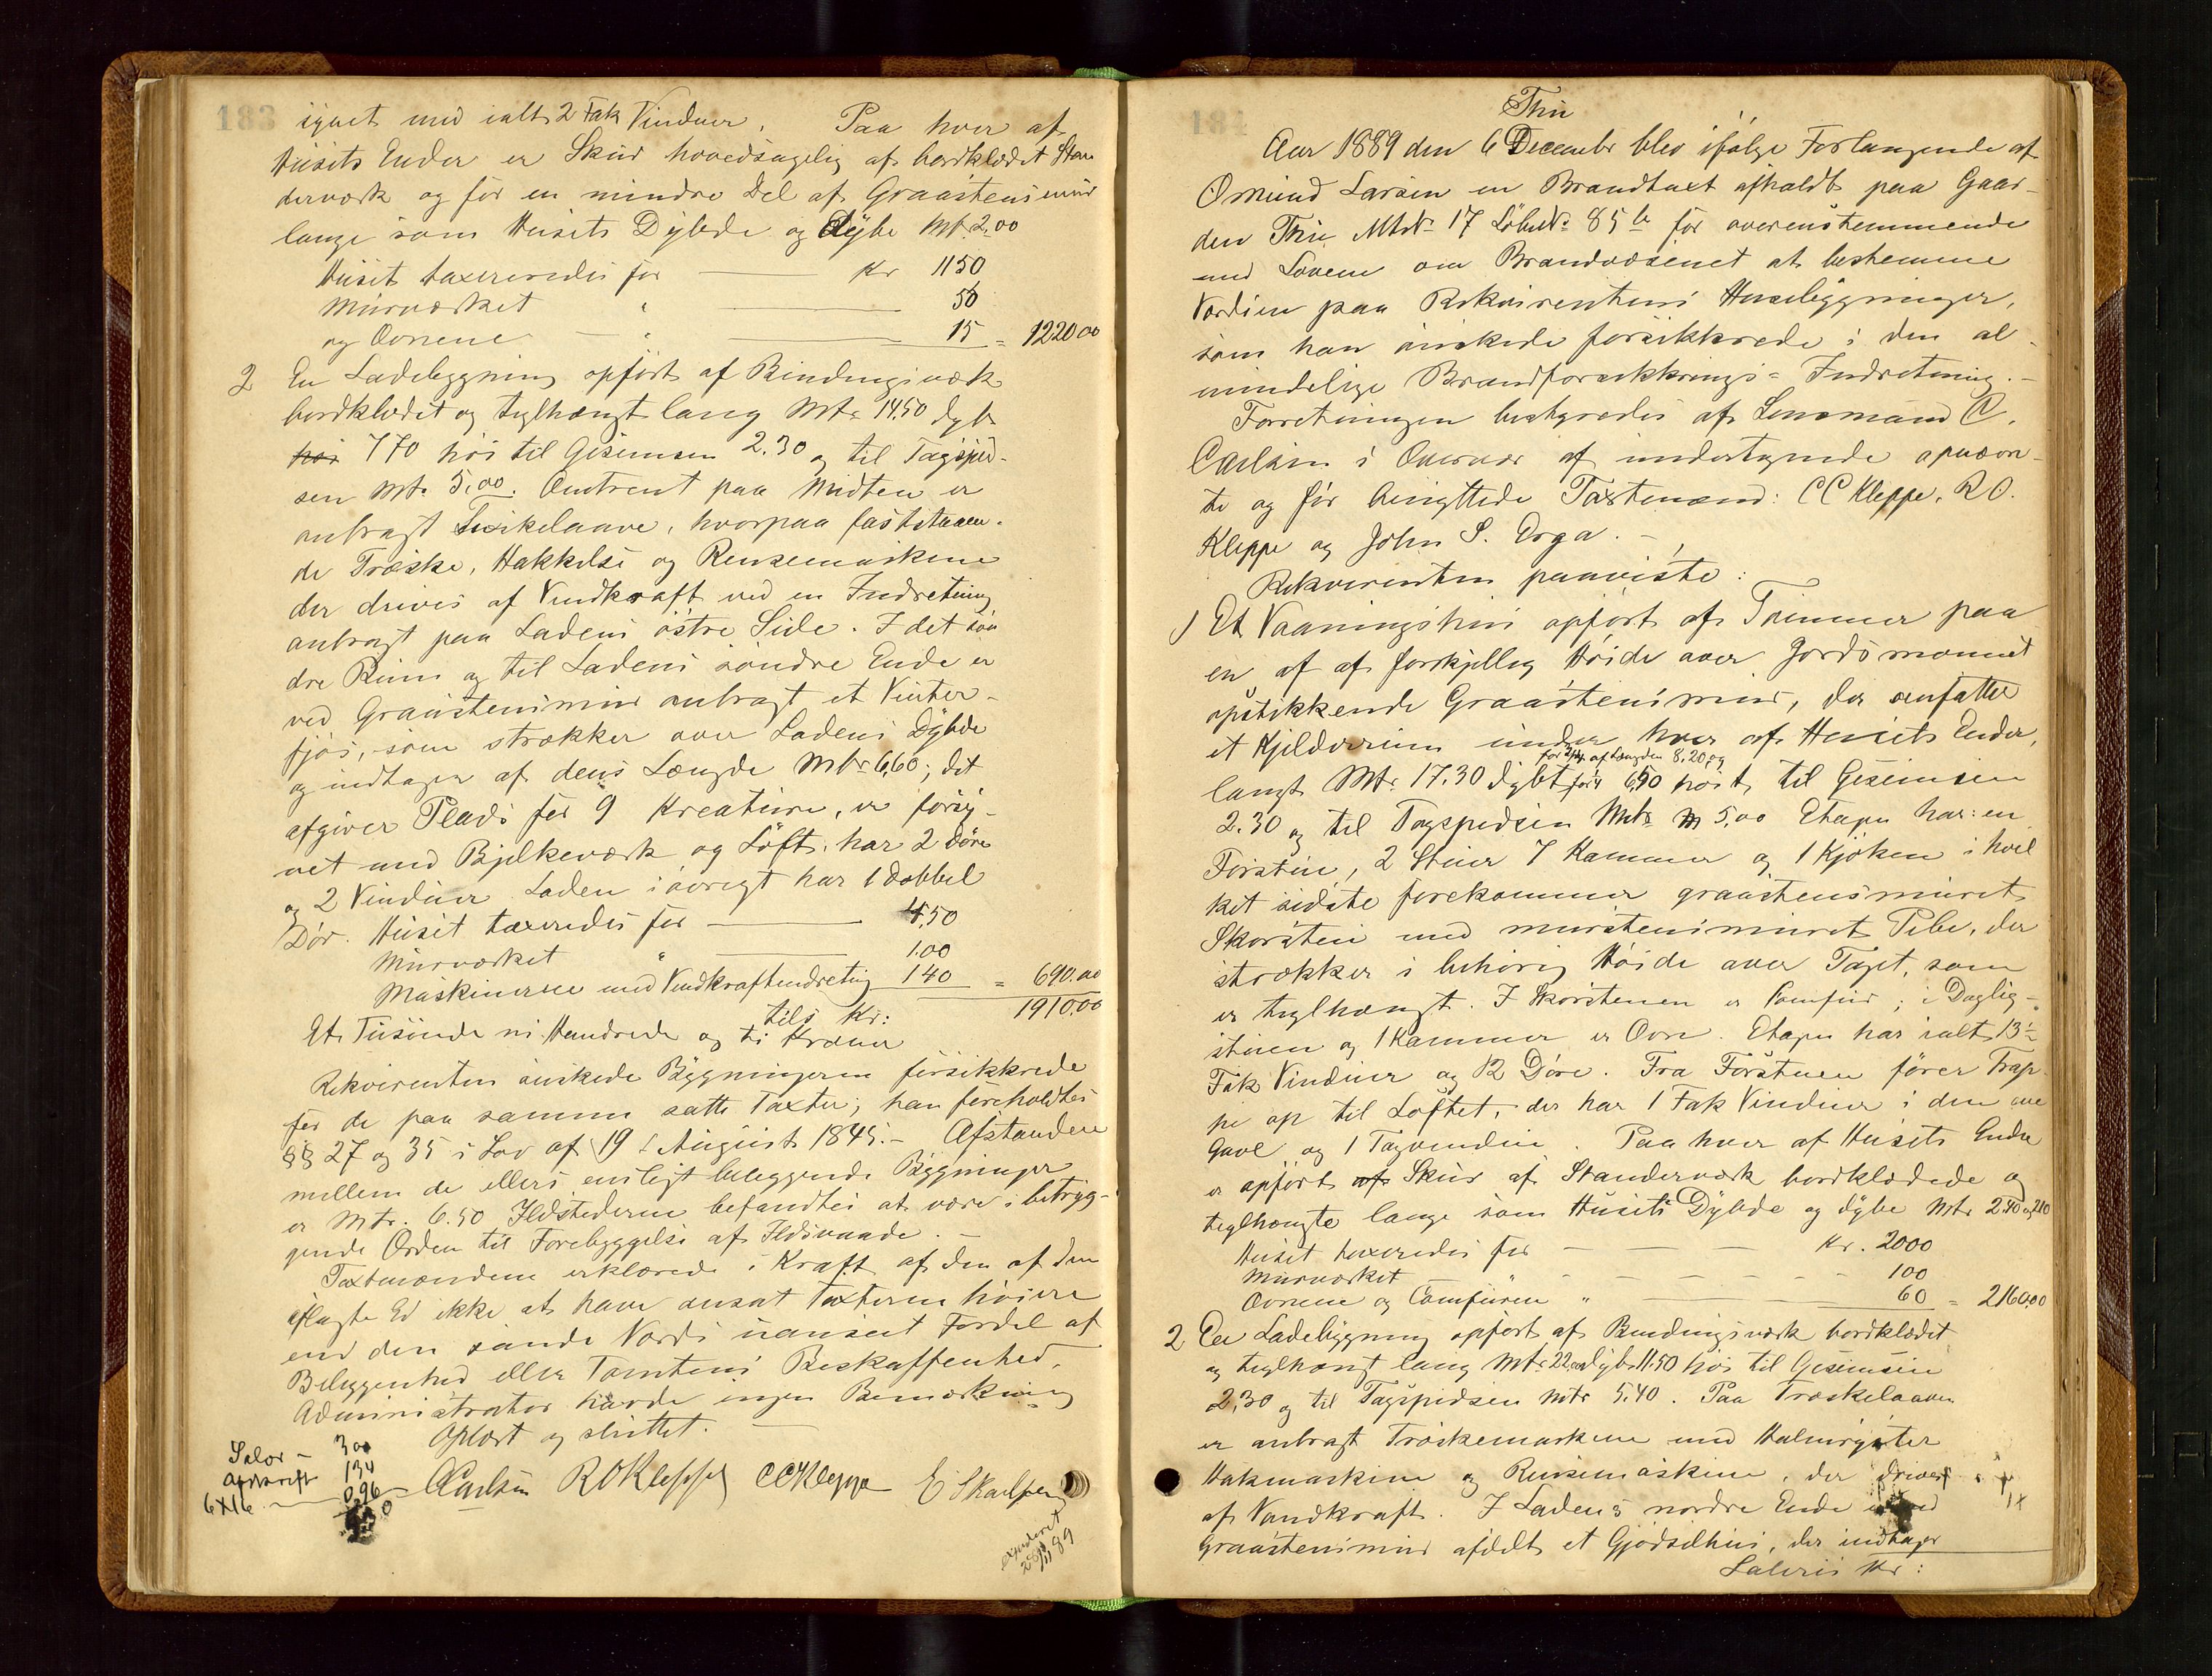 183
synet med ialt 2 Fak Vinduer. Paa hver af
Husets Ender er Skur hovedsagelig af bordklædet Stan
derværk og for en mindre Del af Graastensmur
lange som Husets Dybde og dybe Mtr. 2,00
Huset taxeredes for Kr 1150
Murværket " 50
og Ovnene " 15 = 1220 00
2 En Ladebygning opført af Bindingsværk
bordklædet og teglhængt lang Mtr 14.50 dyb
høi 7 70 høi til Gesimsen 2.30 og til Tagspid-
sen Mtr. 5,00. Omtrent paa Midten er
anbragt Træskelaave, hvorpaa faststaaen-
de Træske, Hakkelse og Rensemaskine
der drives af Vindkraft ved en Indretning
anbragt paa Ladens østre Side. I det søn
dre Rum og til Ladens søndre Ende er
ved Graastensmur anbragt et Vinter-
fjøs, som strækker over Ladens Dybde
og indtager af dens Længde Mtr 6,60; det
afgiver Plads for 9 Kreature, er forsy-
net med Bjelkeværk og Løft, har 2 Døre
og 2 Vinduer. Laden iøvrigt har 1 dobbel
Dør. Huset taxeredes for 4,50
Murværket " 1.00
Maskineree med Vindkraftindretning 140 = 690.00
tils Kr: 1910.00
Et Tusinde ni Hundrede og ti Kroner
Rekvirenten ønskede Bygningerne forsikkrede
for de paa samme satte Taxter; han foreholdtes
§§ 27 og 35 i Lov af 19 August 1845.- Afstanden
mellem de ellers ensligt beleggende Bygninger
er Mtr. 6.50 Ildstederne befandtes at være i betryg-
gende Orden til Forebyggelse af Ildsvaade. -
Taxtmændene erklærede i Kraft af den af dem
aflagte Ed ikke at have ansat Taxterne høiere
end den sande Værdi uanseet Fordel af
Beliggenhed eller Tomtens Beskaffenhed.
Administrator havde ingen Bemærkning
Oplæst og sluttet.
Salær - 3 00
Afskrift 134
6X16 0,96
CCarlsen R O Kleppe C C Kleppe E Skadsem
expederet
89
184
Thu
Aar 1889 den 6 December blev ifølge Forlangende af
Omund Larsen en Brandtaxt afholdt paa Gaar-
den Thu MtrNr 17 LøbeNr 85 b for overenstemmende
med Lovene om Brandvæsenet at bestemme
Værdien paa Rekvirentens Husebygninger,
som han ønskede forsikkrede i den al-
mindelige Brandforsikkrings-Indretning.-
Forretningen bestyredes af Lensmand C.
Carlsen i Overvær af undertegnede opnævn-
te og før benyttede Taxtmænd: C C Kleppe, R O.
Kleppe og John S. Erga. -
Rekvirenten paaviste:
1 Et Vaaningshus opført af Tømmer paa
en af af forskjellig Høide over Jordsmonnet
opstikkende Graastensmur, der omfatter
et Kjelderrum under hver af Husets Ender,
for 2/3 af Længden 8,20, og
langt Mtr. 17.30 dybt for 1/3 6,50 høit, til Gesimsen
2.30 og til Tagspidsen Mtr 5,00 Etagen har: en
Forstue, 2 Stuer 7 Kammer og 1 Kjøken i hvil
ket sidste forekommer graastensmuret
Skorsten med murstensmuret Pibe, der
strækker i behørig Høide over Taget, som
er teglhængt. I Skorstenen er Comfur; i Daglig-
stuen og 1 Kammer er Ovn. Etagen har ialt 13
Fak Vinduer og 12 Døre. Fra Forstuen fører Trap-
pe op til Loftet, der har 1 Fak Vinduer i den ene
Gavl og 1 Tagvindue. Paa hver af Husets Ender
er opført af Skur af Standerværk bordklædede og
teglhængte lange som Husets Dybde og dybe Mtr 2.40 og 2.10
Huset taxeredes for Kr. 2000
Murværket " 100
Ovnene og Comfuren " 60 = 2160,00
2 En Ladebygning opført af Bindingsværk bordklædet
og teglhængt lang Mtr 22.00 dyb 11.50 høi til Gesimsen
2,30 og til Tagspidsen Mtr 5.40. Paa Træskelaaven
er anbragt Træskemaskine med Halmryster
Hakmaskine og Rensemaskine, der drives
af Vandkraft. I Ladens nordre Ende er ved
Graastensmur afdelt et Gjødselhus, der indtager
Lateris Kr: